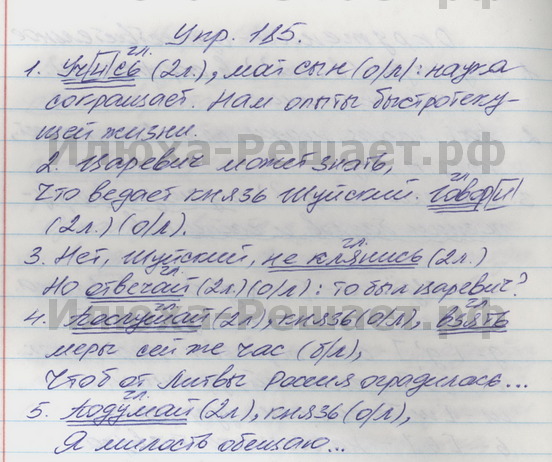 Упр. 185.
гл.
1. Уч|и|сь (2л.), мой сын (о/л): наука
сокращает. Нам опыты быстротеку-
щей жизни.
Илюха-Решает.рф
2. Царевич может знать,
гл.
Что ведает князь Шуйский. Говор|и|
(2л.) (о/л).
гл.
3. Нет, Шуйский, не клянись (2л.)
гл.
Но отвечай (2л.) (о/л): то был царевич?
Илюха-Решает.рф
гл. гл.
4. Послушай (2л.), князь (о/л), взять
меры сей же час (б/л),
Чтоб от Литвы Россия оградилась...
гл.
5. Подумай (2л.), князь (о/л),
Я милость обещаю...